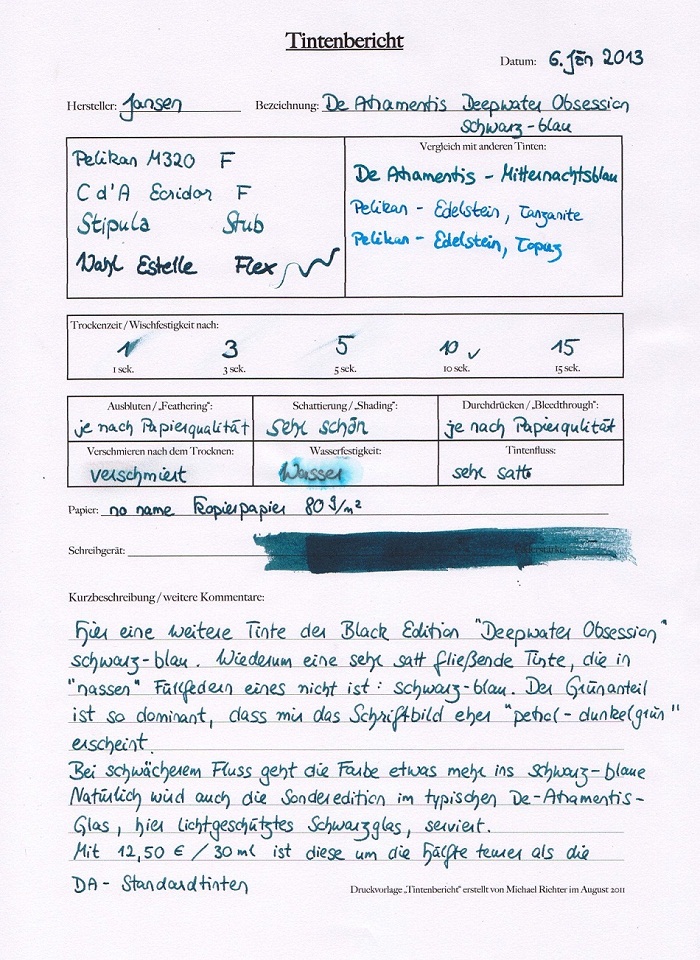 Tintenbericht
Datum: 6. Jän 2013
Hersteller: Jansen Bezeichnung: De Atramentis Deepwater Obsession
schwarz-blau
Pelikan M320 F
C d'A Ecridor F
Stipula Stub
Wahl Estelle Flex
Vergleich mit anderen Tinten:
De Atramentis - Mitternachtsblau
Pelikan - Edelstein, Tanzanite
Pelikan - Edelstein, Topaz
Trockenzeit / Wischfestigkeit nach:
1 3 5 10 ✓ 15
1 sek. 3 sek. 5 sek. 10 sek. 15 sek.
Ausbluten / „Feathering“: Schattierung / „Shading“: Durchdrücken / „Bleedthrough“:
je nach Papierqualität sehr schön je nach Papierqulität
Verschmieren nach dem Trocknen: Wasserfestigkeit: Tintenfluss:
verschmiert Wasser sehr satt
Papier: no name Kopierpapier 80 g/m²
Schreibgerät: Federstärke:
Kurzbeschreibung / weitere Kommentare:
Hier eine weitere Tinte der Black Edition "Deepwater Obsession"
schwarz-blau. Wiederum eine sehr satt fließende Tinte, die in
"nassen" Füllfedern eines nicht ist: schwarz-blau. Der Grünanteil
ist so dominant, dass mir das Schriftbild eher "petrol-dunkelgrün"
erscheint.
Bei schwächerem Fluss geht die Farbe etwas mehr ins schwarz-blaue
Natürlich wird auch die Sonderedition im typischen De-Atramentis-
Glas, hier lichtgeschütztes Schwarzglas, serviert.
Mit 12,50 € / 30 ml ist diese um die Hälfte teurer als die
DA-Standardtinten
Druckvorlage „Tintenbericht“ erstellt von Michael Richter im August 2011